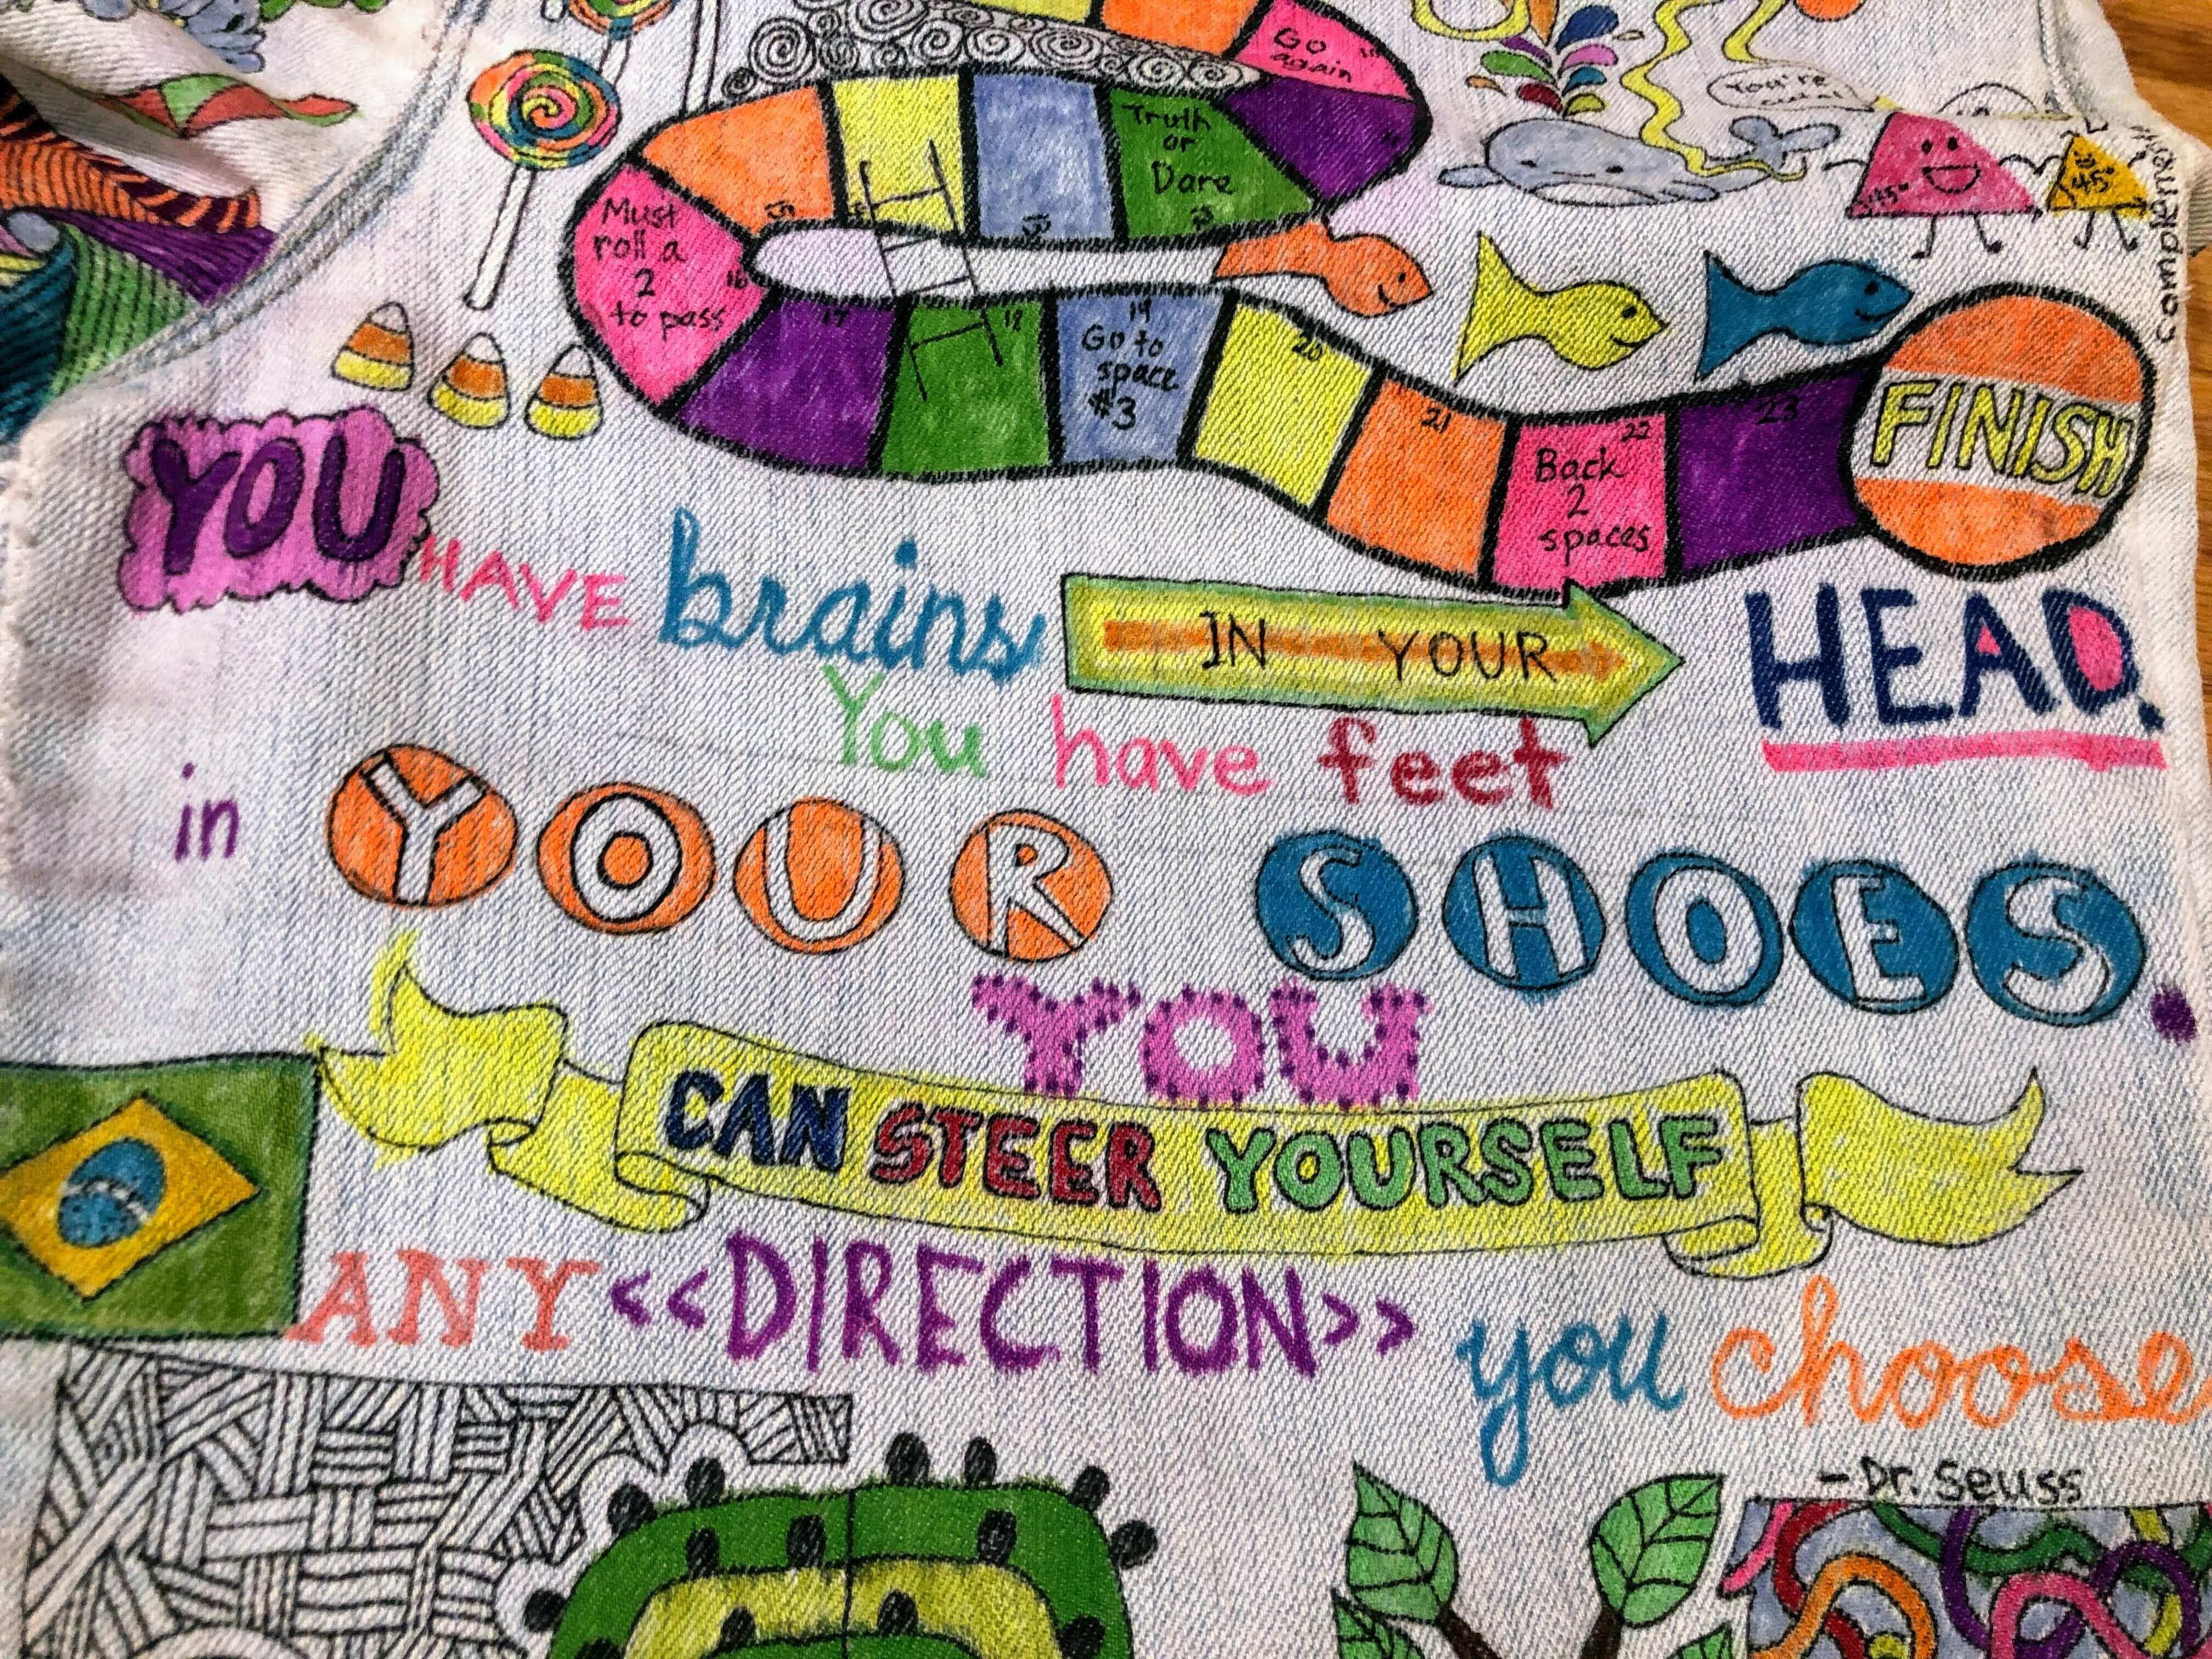 Go again 10
11
Truth or Dare 12
13
15
Must roll a 2 to pass 16
17
18
19 Go to space #3
20
21
22 Back 2 spaces
23
FINISH
You're acute!
115°
45°
YOU HAVE brains IN YOUR HEAD.
You have feet
in YOUR SHOES.
YOU
CAN STEER YOURSELF
ANY <<DIRECTION>> you choose
- Dr. Seuss